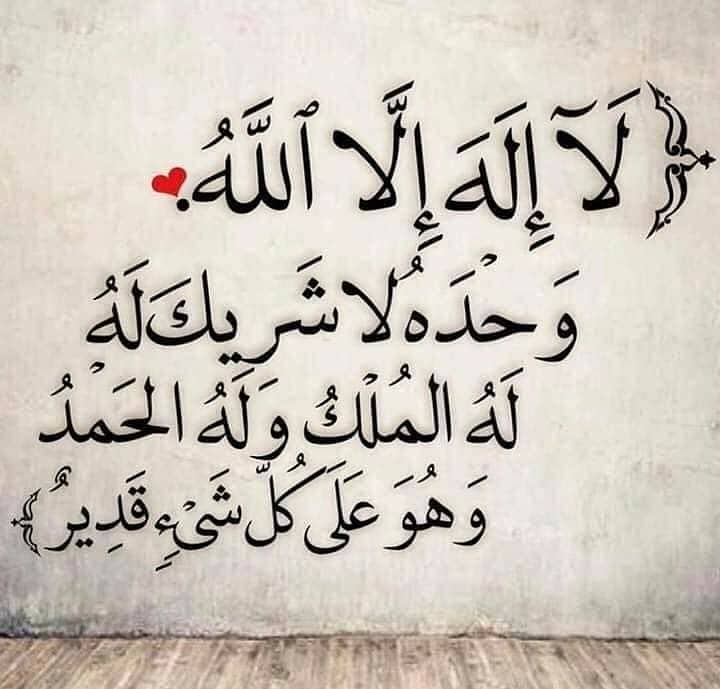 ﴿ لَآ إِلَٰهَ إِلَّا ٱللَّهُ.
وَحْدَهُ لَا شَرِيكَ لَهُ
لَهُ المُلْكُ وَلَهُ الحَمْدُ
وَهُوَ عَلَى كُلِّ شَىْءٍ قَدِيرٌ ﴾